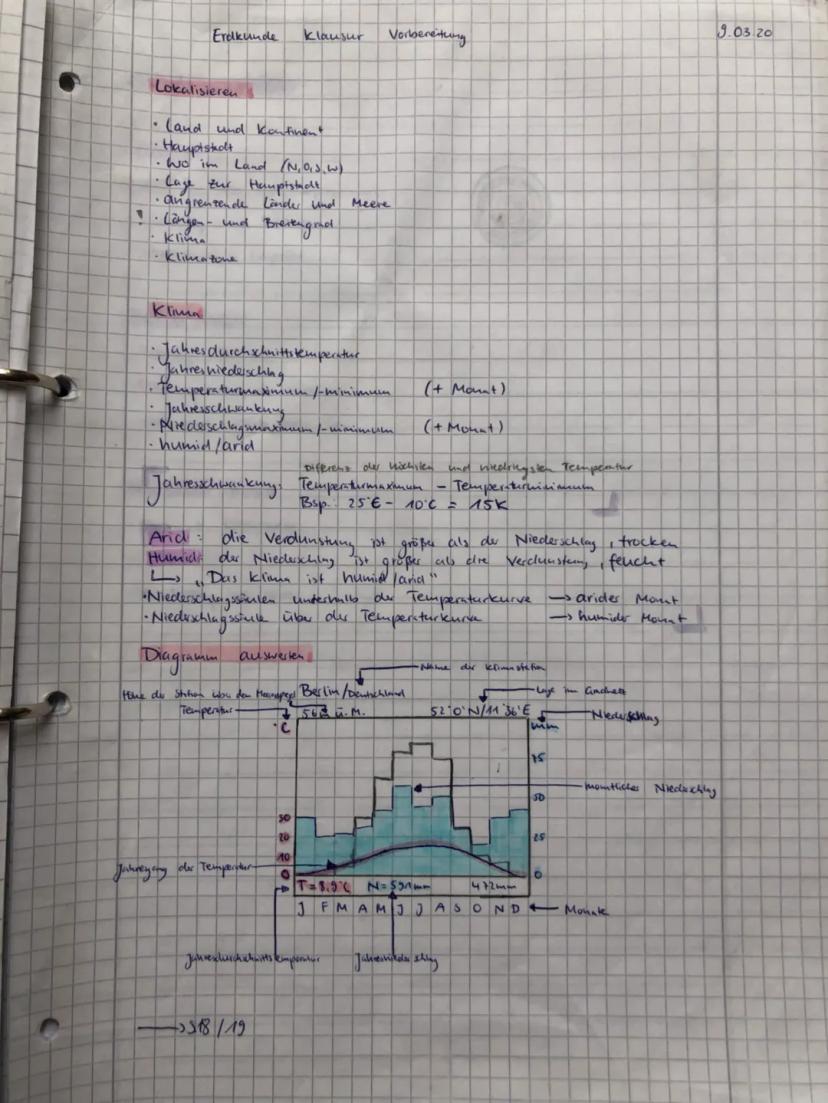 Erdkunde Klausur Vorbereitung 9.03.20
Lokalisieren
· Land und Kontinent
· Hauptstadt
· Wo im Land (N,O,S,W)
· Lage zur Hauptstadt
· angrenzende Länder und Meere
! · Längen- und Breitengrad
· Klima
· Klimazone
Klima
· Jahresdurchschnittstemperatur
· Jahresniederschlag
· Temperaturmaximum/-minimum (+ Monat)
· Jahresschwankung
· Niederschlagsmaximum/-minimum (+ Monat)
· humid/arid
Differenz der höchsten und niedrigsten Temperatur
Jahresschwankung: Temperaturmaximum - Temperaturminimum
Bsp.: 25°C - 10°C = 15K
Arid: die Verdunstung ist größer als der Niederschlag, trocken
Humid: der Niederschlag ist größer als die Verdunstung, feucht
↳ „Das Klima ist humid/arid"
· Niederschlagssäulen unterhalb der Temperaturkurve → arider Monat
· Niederschlagssäule über der Temperaturkurve → humider Monat
Diagramm auswerten
Name der Klimastation
Höhe der Station über den Meeresspiegel Berlin/Deutschland Lage im Gradnetz
Temperatur ü. M. Niederschlag
°C mm
75
50 monatlicher Niederschlag
30
20 25
10
0 0
Jahresgang der Temperatur
T = 8,9°C N = 591mm 472mm
J F M A M J J A S O N D ← Monate
Jahresdurchschnittstemperatur Jahresniederschlag
→ S18/19